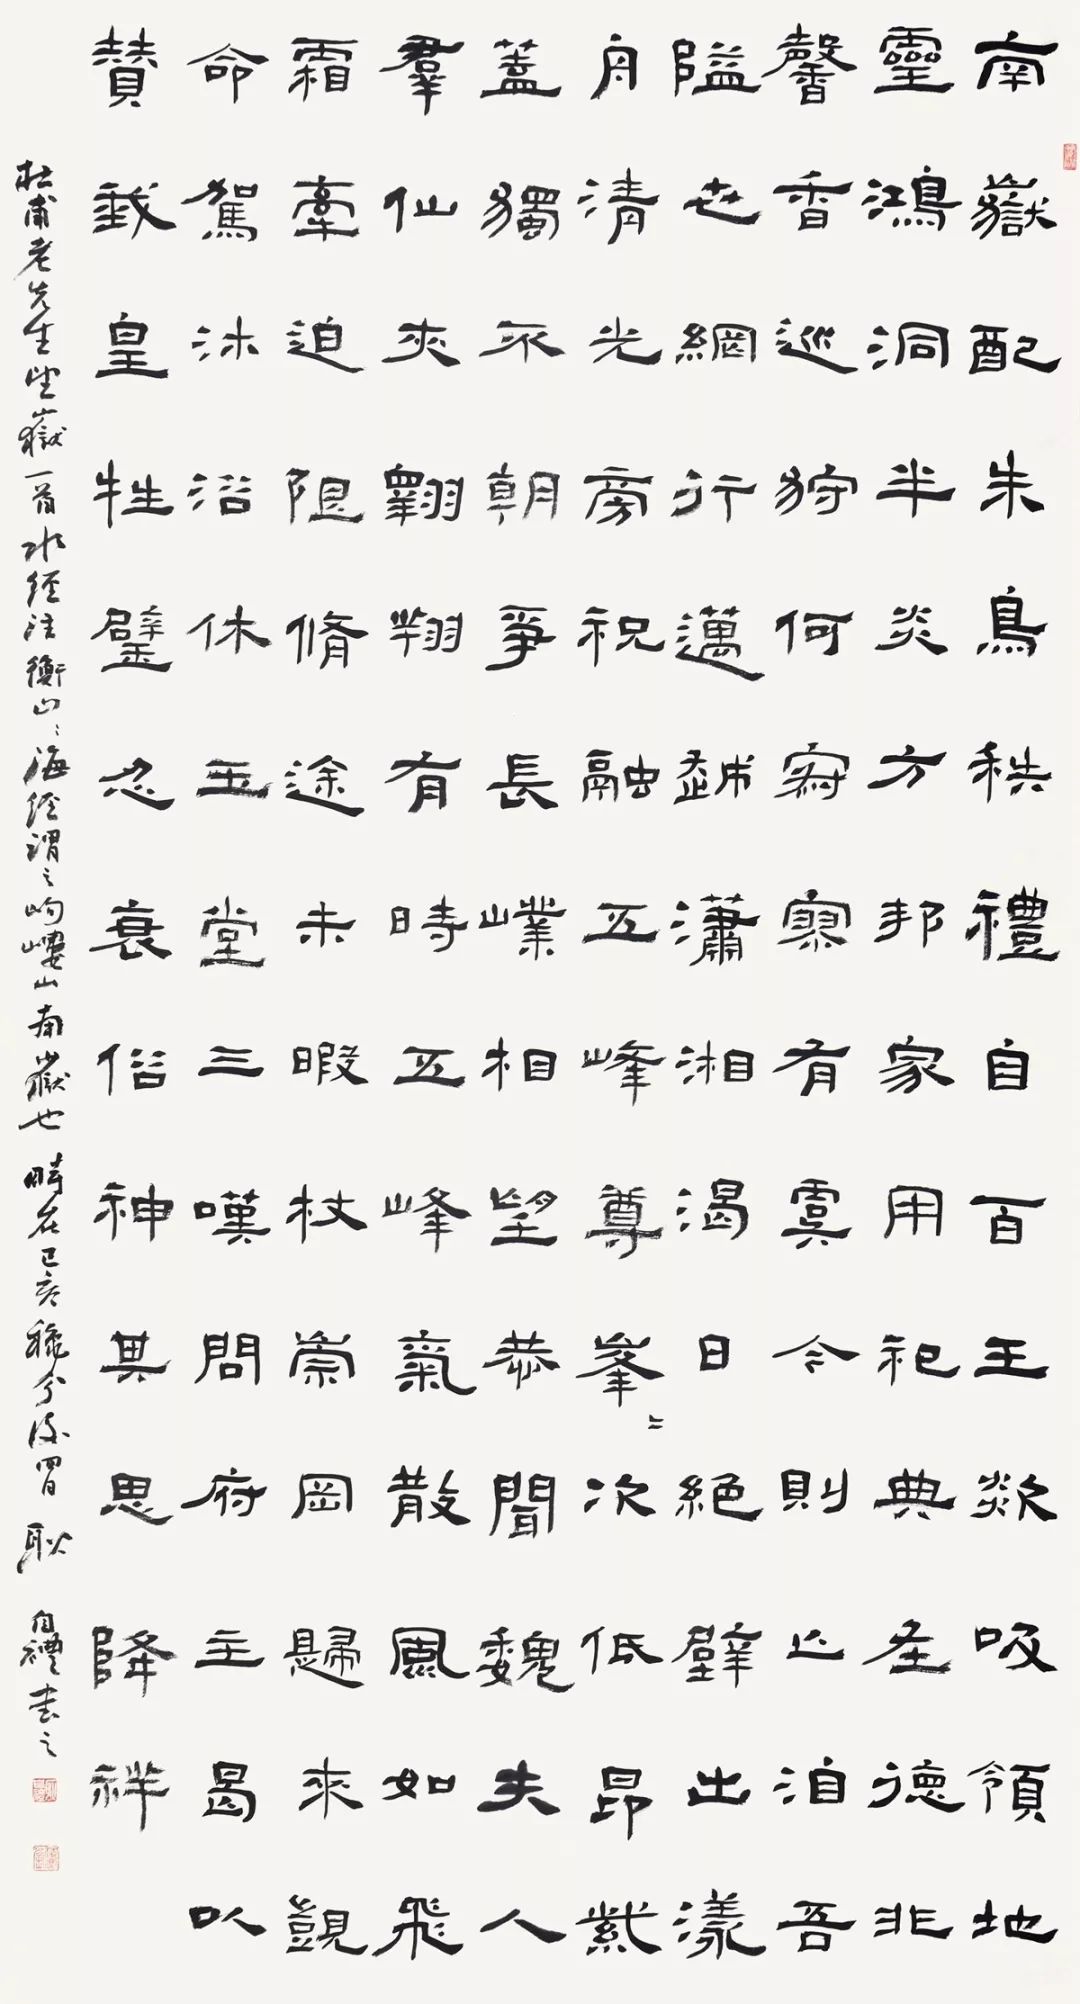 南嶽配朱鳥秩禮自百王欻吸領地
靈鴻洞半炎方邦家用祀典在德非
馨香巡狩何寂寥有虞今則亡洎吾
隘世網行邁越瀟湘渴日絕壁出漾
舟清光旁祝融五峰尊峯〻次低昂紫
蓋獨不朝爭長嶫相望恭聞魏夫人
羣仙夾翱翔有時五峰氣散風如飛
霜牽迫限脩途未暇杖崇岡歸來覬
命駕沐浴休玉堂三嘆問府主曷以
贊我皇牲璧忍衰俗神其思降祥
杜甫老先生望嶽一首水經注衡山〻海經謂之岣嶁山南嶽也時在己亥穐分後四日耿自禮書之